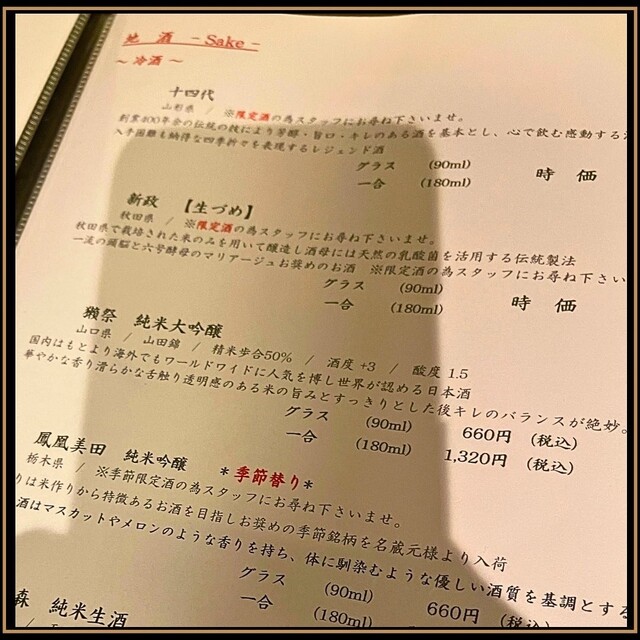 地 酒 - Sake -
～ 冷酒 ～
十四代
山形県 / ※限定酒の為スタッフにお尋ね下さいませ。
創業400年余の伝統の技により芳醇・旨口・キレのある酒を基本とし、心で飲む感動する
入手困難も納得な四季折々を表現するレジェンド酒
グラス (90ml)
一合 (180ml) 時 価
新政 【生づめ】
秋田県 / ※限定酒の為スタッフにお尋ね下さいませ。
秋田県で栽培された米のみを用いて醸造し酒母には天然の乳酸菌を活用する伝統製法
一流の頭脳と六号酵母のマリアージュお奨めのお酒 ※限定酒の為スタッフにお尋ね下さい
グラス (90ml)
一合 (180ml) 時 価
獺祭 純米大吟醸
山口県 / 山田錦 / 精米歩合50% / 酒度 +3 / 酸度 1.5
国内はもとより海外でもワールドワイドに人気を博し世界が認める日本酒
華やかな香り滑らかな舌触り透明感のある米の旨みとすっきりとした後キレのバランスが絶妙。
グラス (90ml) 660円 (税込)
一合 (180ml) 1,320円 (税込)
鳳凰美田 純米吟醸 *季節替り*
栃木県 / ※季節限定酒の為スタッフにお尋ね下さいませ。
りは米作りから特徴あるお酒を目指しお奨めの季節銘柄を名蔵元様より入荷
酒はマスカットやメロンのような香りを持ち、体に馴染むような優しい酒質を基調とする
グラス (90ml) 660円 (税込)
一合 (180ml)
森 純米生酒